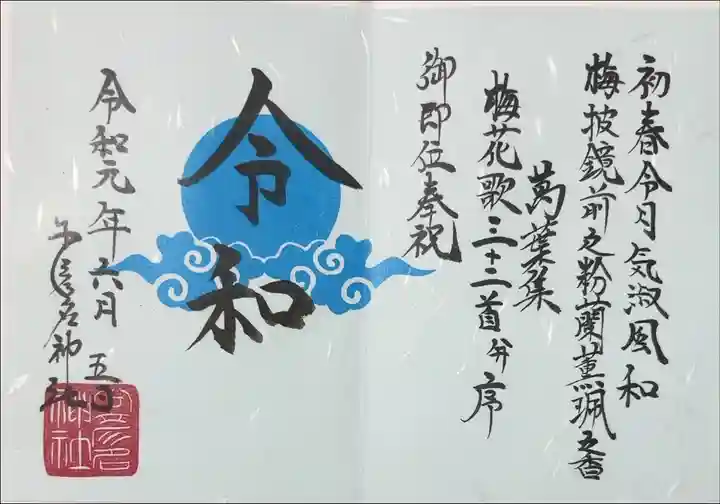 初春令月気淑風和
梅披鏡前之粉蘭薫珮之香
萬葉集
梅花歌三十二首并序
御即位奉祝
令和
令和元年六月五日
神社
神社